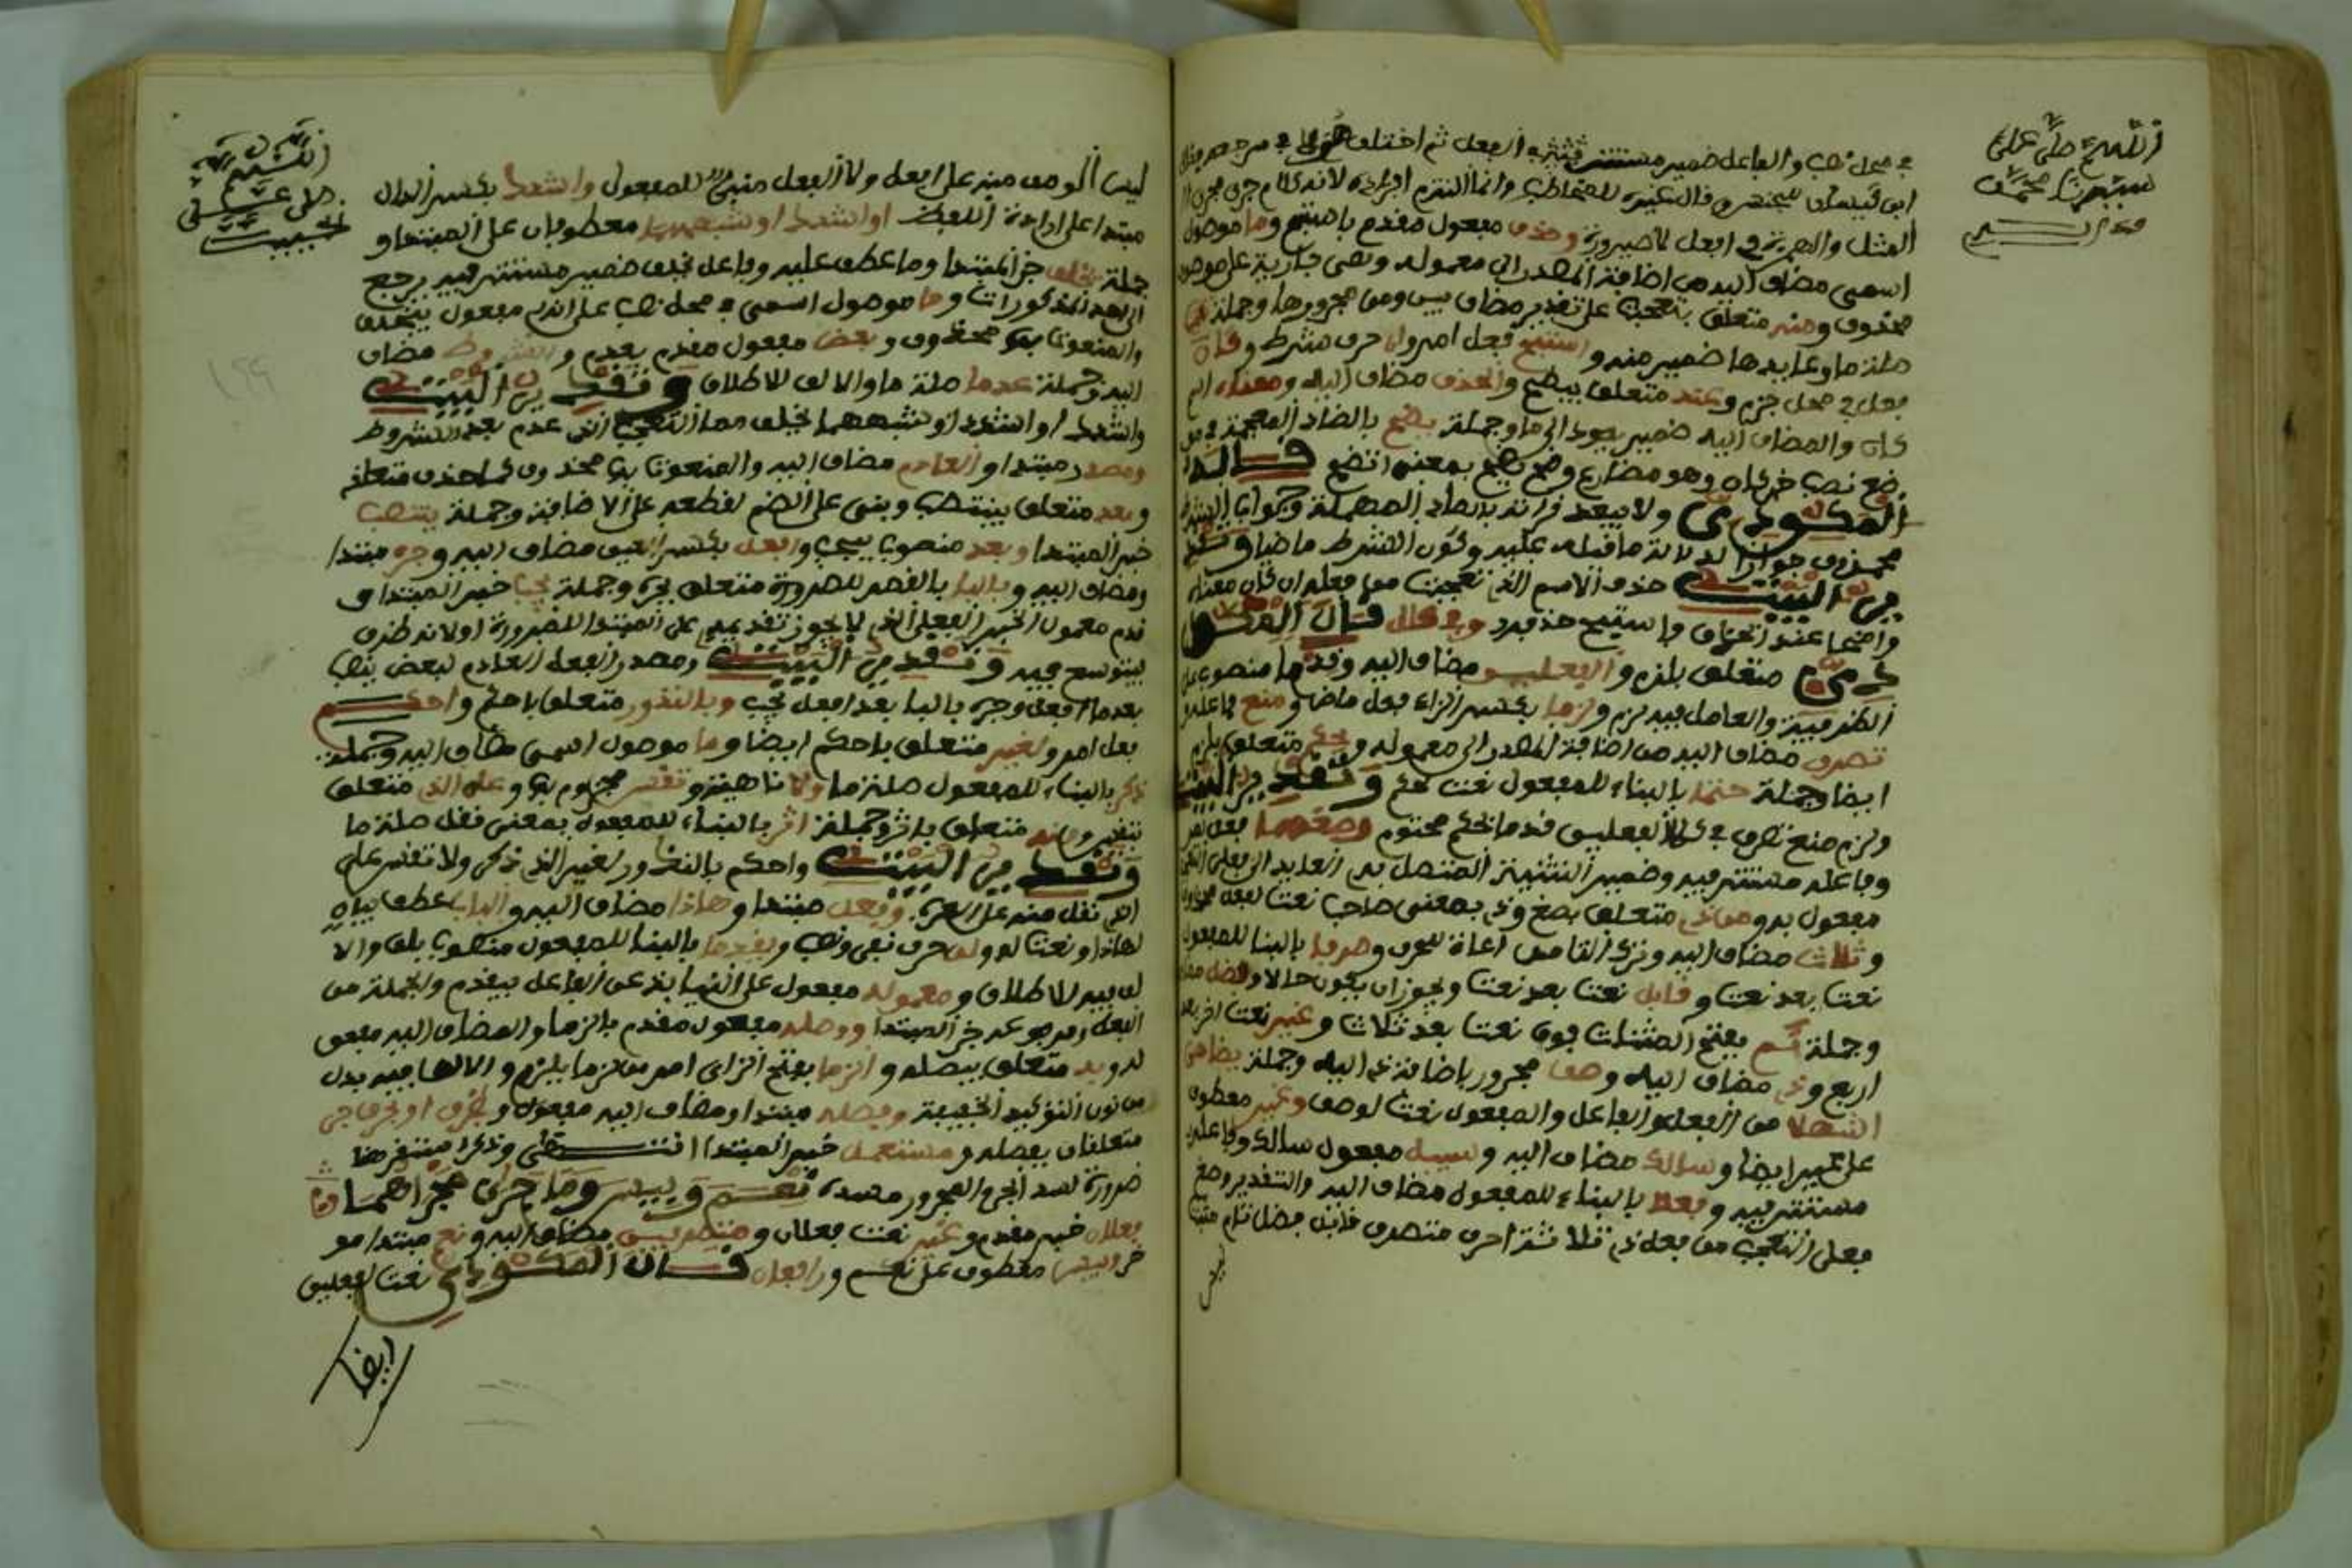 اللهم صل على
سيدنا محمد
في محل نصب والفاعل ضمير مستتر الفعل ثم اختلف في مرجع
ابن كيسان للحسن وقال غيره للمخاطب وانما التزم افراده لانه كلام جرى مجرى
المثل والهمزة في افعل للصيرورة وحذف مفعول مقدم باستبح وما موصول
اسمي مضاف اليه من اضافة المصدر الى معموله وهي جارية على موصوف
محذوف ومنه متعلق بتعجبت على تقدير مضاف بين ومن مجرورها وجملة
صلة ما وعايدها ضمير منه واستبح فعل امر وان حرف شرط وكان
فعل في محل جزم وعند متعلق بيضح والحذف مضاف اليه ومعناه اسم
كان والمضاف اليه ضمير يعود الى ما وجملة يضح بالضاد المعجمة في مو
ضع نصب خبر كان وهو مضارع وضح يضح بمعنى اتضح قال
المكودي ولا يبعد قراءته بالصاد المهملة وجواب الشرط
محذوف جوازا لدلالة ما قبله عليه وكون الشرط ماضيا وتقد
ير البيت حذف الاسم الذي تعجبت من فعله ان كان معناه
واضحا عند الحذف واستبح حذفه وفي كلا قال المكو
دي متعلق بلزم والفعلين مضاف اليه وقدما منصوب على
الظرفية والعامل فيه لزم ولزما بكسر الزاي فعل ماض ومنع فاعله
تصرف مضاف اليه من اضافة المصدر الى معموله وبحكم متعلق بلزم
ايضا وجملة حتما بالبناء للمفعول نعت لحكم وتقدير البيت
ولزم منع تصرف في كلا الفعلين قدما بحكم محتوم وصغهما فعل امر
وفاعله مستتر فيه وضمير التثنية المتصل به العايد الى فعلي التعجب
مفعول به ومن ذي متعلق بصغ وذي بمعنى صاحب نعت لفعل محذوف
وثلاث مضاف اليه وترك التا من مراعاة للحرف وصرفا بالبنا للمفعول
نعت بعد نعت وقابل نعت بعد نعت ويجوز ان يكون حالا وفضل مضا
وجملة تم بفتح المثناة فوق نعت بعد ثلاث وغير نعت اخر بعد
اربع وذي مضاف اليه وصف مجرور باضافة ذي اليه وجملة يضاهي
اشهلا من الفعل والفاعل والمفعول نعت لوصف وغير معطوف
على غير ايضا وسالك مضاف اليه وسبيل مفعول سالك وفاعله
مستتر فيه وفعلا بالبناء للمفعول مضاف اليه والتقدير وصغ
فعلي التعجب من فعل ذي ثلاثة احرف متصرف قابل فضل تام مثبت
ليس
اللهم
صل على
الحبيب
ليس الوصف منه على افعل ولا الفعل مبني للمفعول واشدد بكسر الدال
مبتدا على ارادة اللفظ او اشد او شبههما معطوفان على المبتدا و
جملة يخلف خبر المبتدا وما عطف عليه وفاعل يخلف ضمير مستتر فيه يرجع
الى احد المذكورات وما موصول اسمي في محل نصب على انه مفعول بيخلف
والمنعوت به محذوف وبعض مفعول مقدم بعدم والشروط مضاف
اليه وجملة عدما صلة ما والالف للاطلاق وتقدير البيت
واشدد او اشد او شبههما يخلف ما التعجب الذي عدم بعض الشروط
ومصدر مبتدا والعادم مضاف اليه والمنعوت به محذوف كما حذف متعلقه
وبعد متعلق بينتصب وبني على الضم لقطعه على الاضافة وجملة ينتصب
خبر المبتدا وبعد منصوب بيجب وافعل بكسر العين مضاف اليه وجره مبتدا
ومضاف اليه وبالبا بالقصر للضرورة متعلق بجره وجملة يجب خبر المبتدا و
قدم معمول الخبر الفعلي الذي لا يجوز تقديمه على المبتدا للضرورة او لانه ظرف
يتوسع فيه وتقدير البيت ومصدر الفعل العادم لبعض ينصب
بعد ما افعل وجره بالبا بعد افعل يجب وبالندور متعلق باحكم واحكم
فعل امر ولغير متعلق باحكم ايضا وما موصول اسمي مضاف اليه وجملة
ذكر بالبناء للمفعول صلة ما ولا ناهية وتقس مجزوم بها وعلى الذي متعلق
بتقس ومنه متعلق باثر وجملة اثر بالبناء للمفعول بمعنى نقل صلة ما
وتقدير البيت واحكم بالندور لغير الذي ذكر ولا تقس على
الذي نقل منه على العرب وفعل مبتدا وهاذا مضاف اليه والباب عطف بيان
لهاذا او نعت له ولن حرف نفي ونصب ويقدما بالبنا للمفعول منصوب بلن والا
لف فيه للاطلاق ومعموله مفعول على النيابة عن الفاعل بيقدم والجملة من
الفعل ومرفوعه خبر المبتدا ووصله مفعول مقدم بالزما والمضاف اليه مفعو
له وبه متعلق بيصله والزما بفتح الزاي امر من لزما يلزم والالف فيه بدل
من نون التوكيد الخفيفة وفصله مبتدا ومضاف اليه مفعوله وبظرف او بحرف جر
متعلقان بفصله ومستعمل خبر المبتدا انتهى وذكر مستقرهما
ضرورة لسد الجر والمجرور مسده نعم وبيس وما جرى مجراهما
فعلان خبر مقدم وغير نعت فعلان ومتصرفين مضاف اليه ونعم مبتدا مو
خر وبيس معطوف على نعم ورافعان قال المكودي نعت لفعلين
ايضا